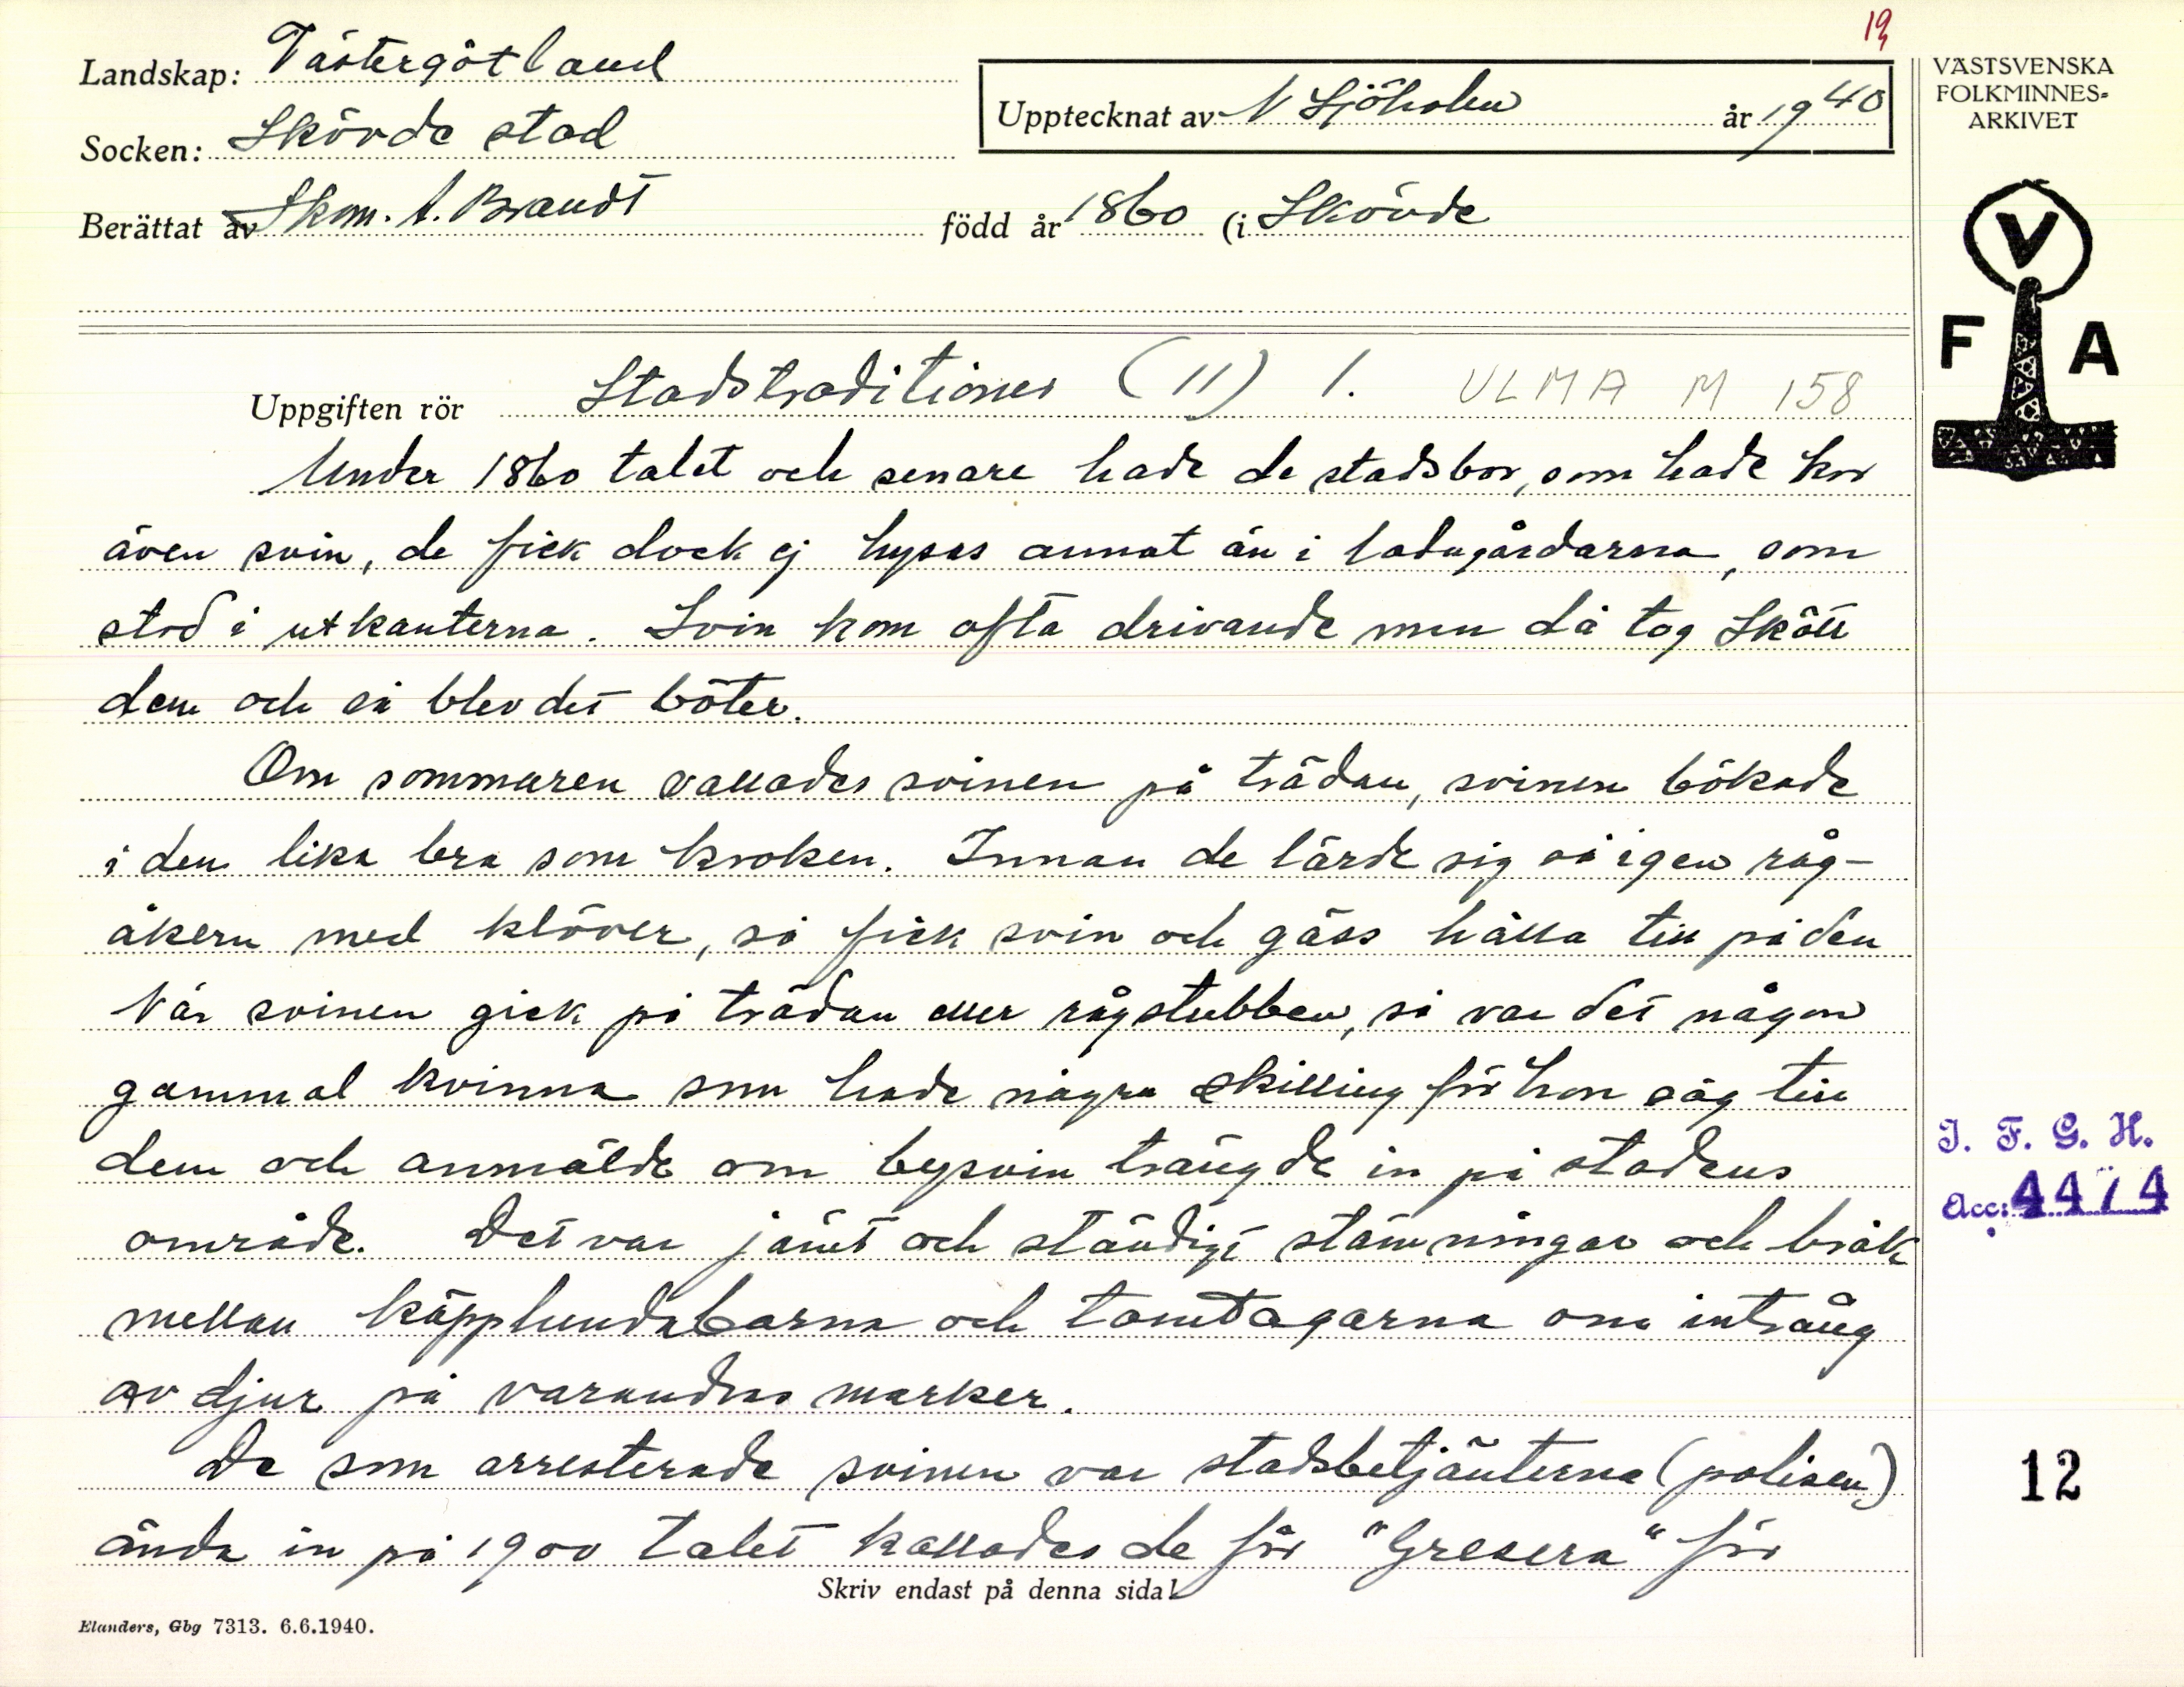 19
Landskap: Västergötland
Socken: Skövde stad
Berättat av Skom. A. Brandt född år 1860 (i Skövde
Upptecknat av N Sjöholm år 1940
VÄSTSVENSKA
FOLKMINNES-
ARKIVET
V
F A
Uppgiften rör Stadstraditioner (11) 1. ULMA M 158
Under 1860 talet och senare hade de stadsbor, som hade kor
även svin, de fick dock ej hysas annat än i ladugårdarna, som
stod i utkanterna. Svin kom ofta drivande men då tog Skött
dem och så blev det böter.
Om sommaren vallades svinen på trädan, svinen bökade
i den lika bra som kroken. Innan de lärde sig så igen råg-
åkern med klöver, så fick svin och gäss hålla till på den
När svinen gick på trädan eller rågstubben, så var det någon
gammal kvinna som hade några skilling för hon såg till
dem och anmälde om bysvin trängde in på stadens
område. Det var jämt och ständigt stämningar och bråk
mellan käpplundaborna och tomtägarna om intrång
av djur på varandras marker.
De som arresterade svinen var stadsbetjänterna (polisen)
ända in på 1900 talet kallades de för "Gresera" för
Skriv endast på denna sida!
Elanders, Gbg 7313. 6.6.1940.
I. F. G. H.
Acc: 4474
12